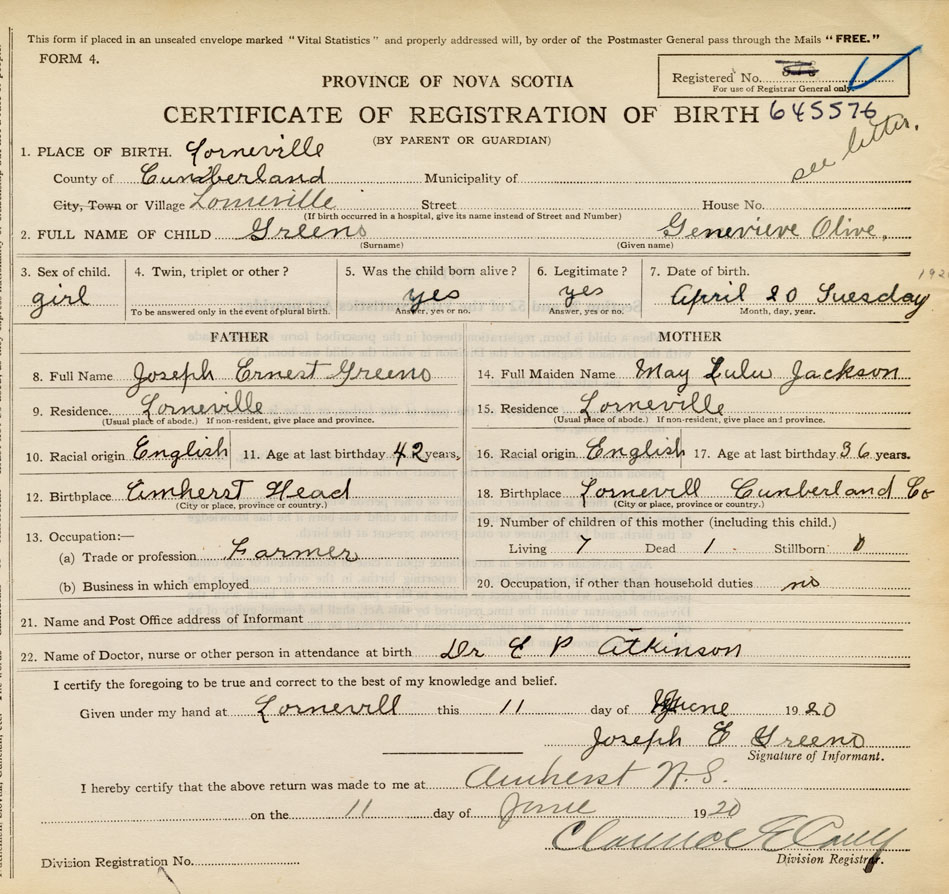 This form if placed in an unsealed envelope marked "Vital Statistics" and properly addressed will, by order of the Postmaster General pass through the Mails "FREE."
FORM 4.
PROVINCE OF NOVA SCOTIA
Registered No.
For use of Registrar General only.
CERTIFICATE OF REGISTRATION OF BIRTH 645576
(BY PARENT OR GUARDIAN)
see letter.
1. PLACE OF BIRTH. Lorneville
County of Cumberland Municipality of
City, Town or Village Lorneville Street House No.
(If birth occurred in a hospital, give its name instead of Street and Number)
2. FULL NAME OF CHILD Greeno Genevieve Olive,
(Surname) (Given name)
3. Sex of child. 4. Twin, triplet or other? 5. Was the child born alive? 6. Legitimate? 7. Date of birth.
girl yes yes April 20 Tuesday
To be answered only in the event of plural birth. Answer, yes or no. Answer, yes or no. Month, day, year.
FATHER MOTHER
8. Full Name Joseph Ernest Greeno 14. Full Maiden Name May Lulu Jackson
9. Residence. Lorneville 15. Residence Lorneville
(Usual place of abode.) If non-resident, give place and province. (Usual place of abode.) If non-resident, give place and province.
10. Racial origin English 11. Age at last birthday 42 years, 16. Racial origin English 17. Age at last birthday 36 years.
12. Birthplace Amherst Head 18. Birthplace Lornevill Cunberland Co
(City or place, province or country.) (City or place, province or country.)
19. Number of children of this mother (including this child.)
13. Occupation:—
(a) Trade or profession Farmer Living 7 Dead 1 Stillborn 0
(b) Business in which employed 20. Occupation, if other than household duties no
21. Name and Post Office address of Informant
22. Name of Doctor, nurse or other person in attendance at birth Dr E P Atkinson
I certify the foregoing to be true and correct to the best of my knowledge and belief.
Given under my hand at Lornevill this 11 day of June 1920
Joseph E Greeno
Signature of Informant.
I hereby certify that the above return was made to me at Amherst N.S.
on the 11 day of June 1920
Clarence E
Division Registrar.
Division Registration No.